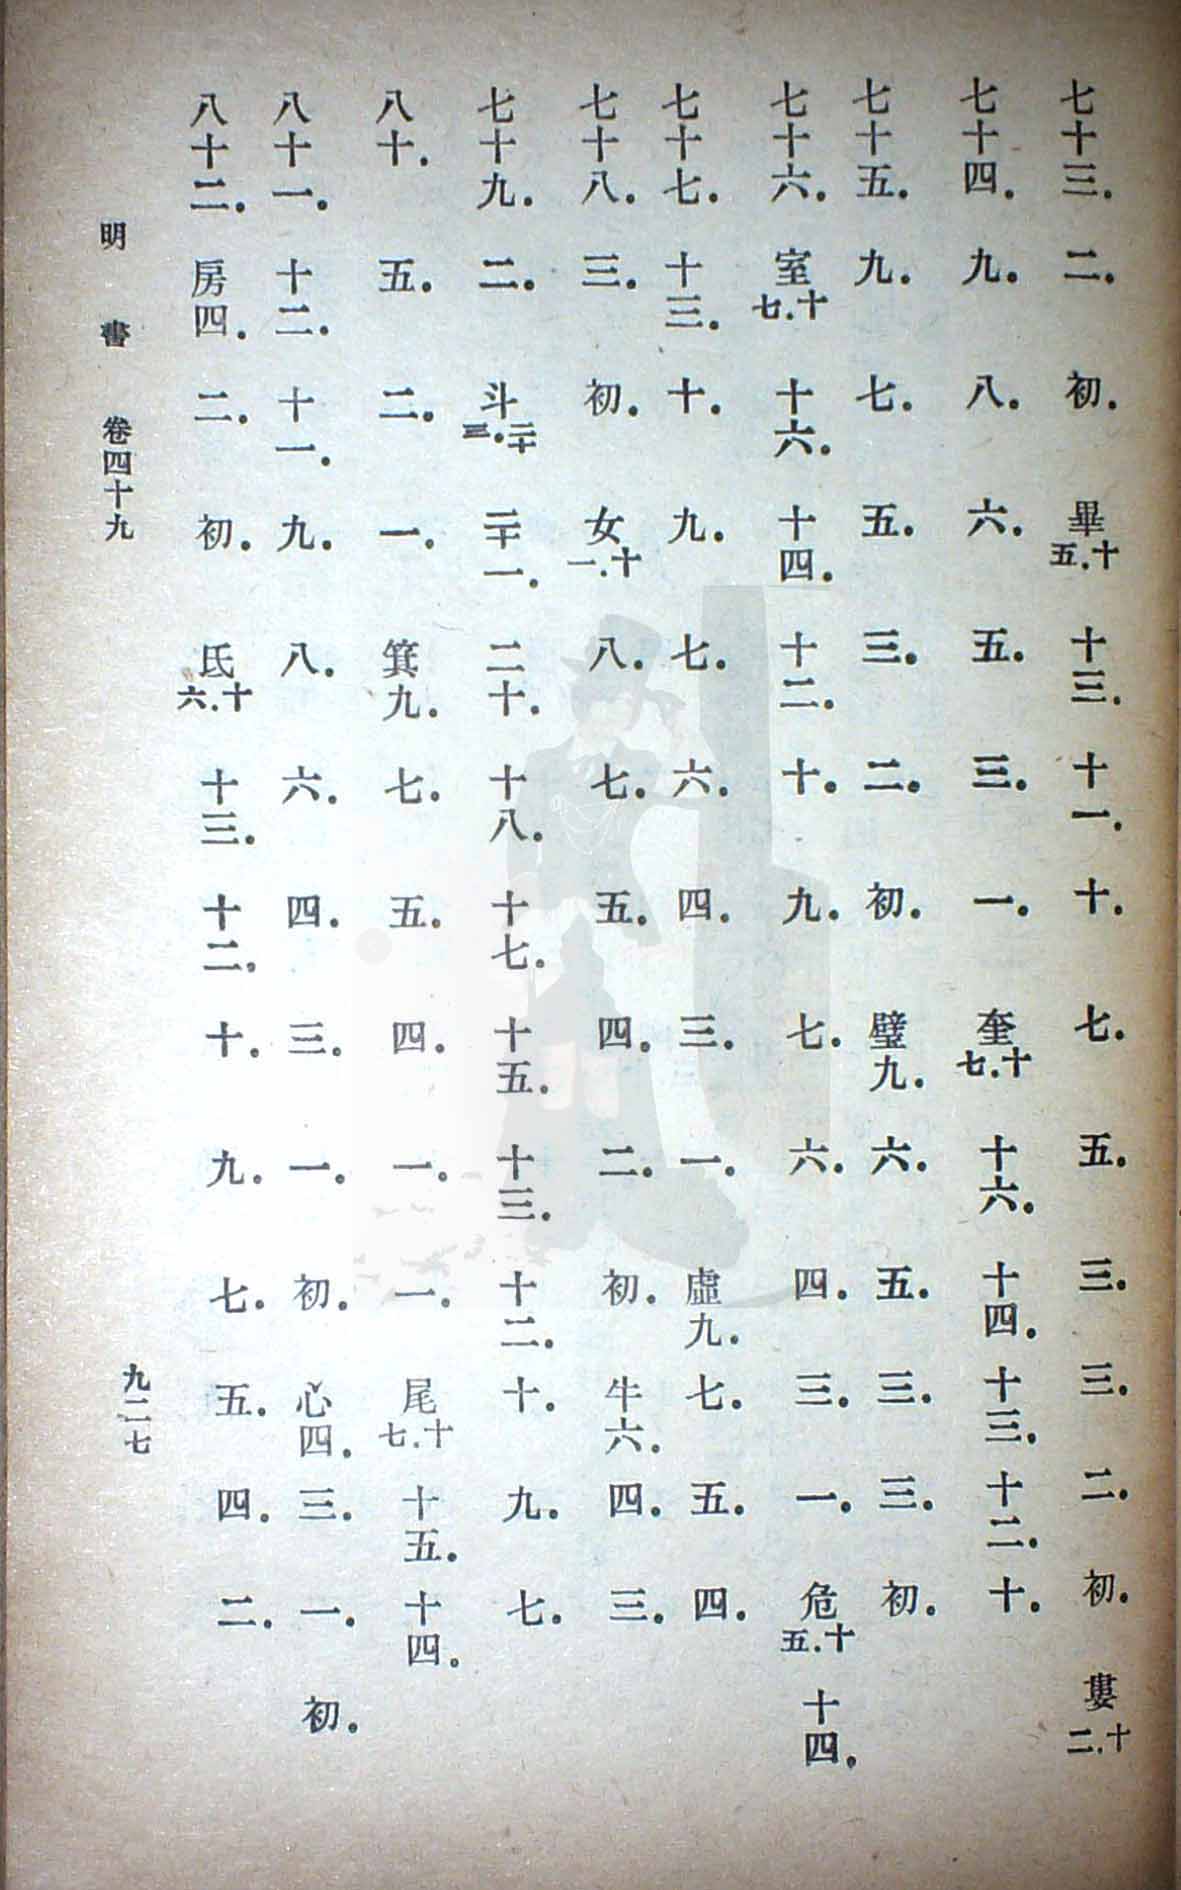 七十三．二．初．畢十五．十三．十一．十．七．五．三．三．二．初．婁十二．
七十四．九．八．六．五．三．一．奎十七．十六．十四．十三．十二．十．
七十五．九．七．五．三．二．初．璧九．六．五．三．三．初．
七十六．室十七．十六．十四．十二．十．九．七．六．四．三．一．危十五．十四．
七十七．十三．十．九．七．六．四．三．一．虛九．七．五．四．
七十八．三．初．女十一．八．七．五．四．二．初．牛六．四．三．
七十九．二．斗二十三．二十一．二十．十八．十七．十五．十三．十二．十．九．七．
八十．五．二．一．箕九．七．五．四．一．一．尾十七．十五．十四．
八十一．十二．十一．九．八．六．四．三．一．初．心四．三．一．初．
八十二．房四．二．初．氐十六．十三．十二．十．九．七．五．四．二．
明書 卷四十九
九二七